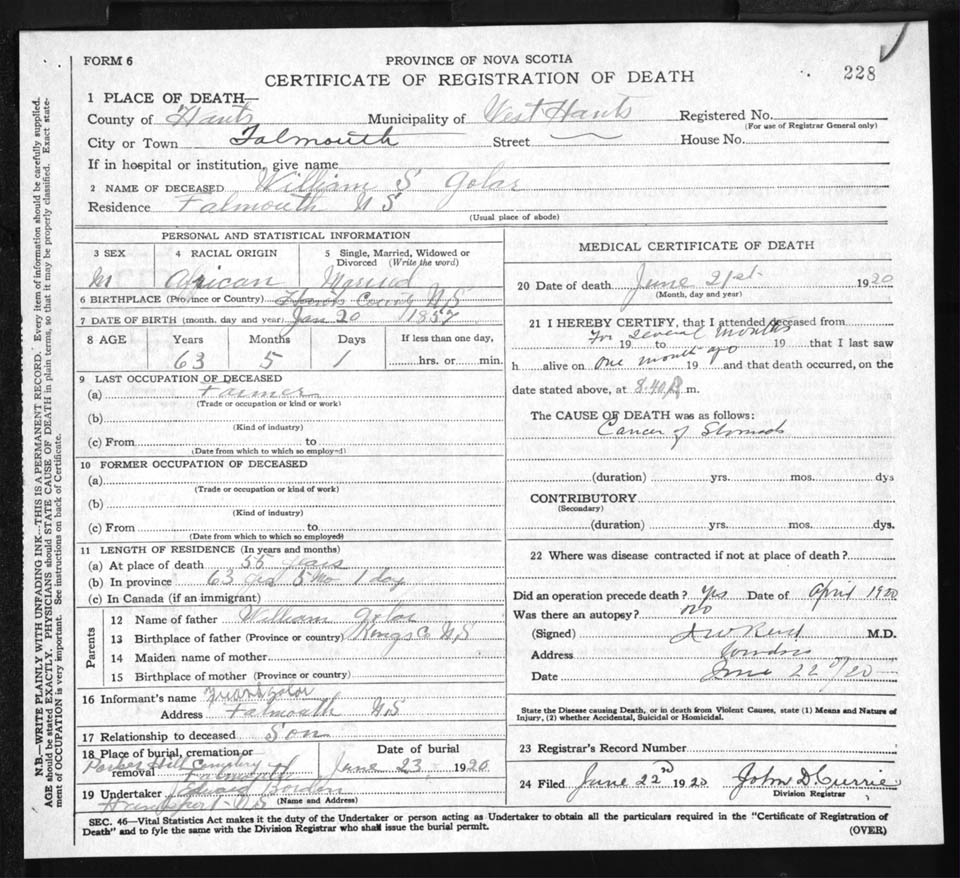 FORM 6
PROVINCE OF NOVA SCOTIA
CERTIFICATE OF REGISTRATION OF DEATH
228
1 PLACE OF DEATH—
County of Hants Municipality of West Hants Registered No.
(For use of Registrar General only)
City or Town Falmouth Street House No.
If in hospital or institution, give name
2 NAME OF DECEASED William S Golar
Residence Falmouth N S
(Usual place of abode)
PERSONAL AND STATISTICAL INFORMATION
3 SEX 4 RACIAL ORIGIN 5 Single, Married, Widowed or Divorced (Write the word)
M African Married
6 BIRTHPLACE (Province or Country) Hants County N.S
7 DATE OF BIRTH (month, day and year) Jan 20 1857
8 AGE Years Months Days If less than one day,
63 5 1 hrs. or min.
9 LAST OCCUPATION OF DECEASED
(a) Farmer
(Trade or occupation or kind or work)
(b)
(Kind of industry)
(c) From to
(Date from which to which so employed)
10 FORMER OCCUPATION OF DECEASED
(a)
(Trade or occupation or kind of work)
(b)
(Kind of industry)
(c) From to
(Date from which to which so employed)
11 LENGTH OF RESIDENCE (In years and months)
(a) At place of death 55 years
(b) In province 63 yrs 5 mo 1 day
(c) In Canada (if an immigrant)
Parents
12 Name of father William Golar
13 Birthplace of father (Province or country) Kings Co N.S
14 Maiden name of mother
15 Birthplace of mother (Province or country)
16 Informant's name Golar
Address Falmouth N.S
17 Relationship to deceased Son
18 Place of burial, cremation or removal Date of burial
Hill Cemetery Falmouth June 23 1920
19 Undertaker Edward Borden
Hantsport N S (Name and Address)
MEDICAL CERTIFICATE OF DEATH
20 Date of death June 21st 1920
(Month, day and year)
21 I HEREBY CERTIFY, that I attended deceased from
For several months
19 to 19 that I last saw
h alive on One month ago 19 and that death occurred, on the
date stated above, at 8.40 P. m.
The CAUSE OF DEATH was as follows:
Cancer of Stomach
(duration) yrs. mos. dys
CONTRIBUTORY
(Secondary)
(duration) yrs. mos. dys.
22 Where was disease contracted if not at place of death?
Did an operation precede death? Yes Date of April 1920
Was there an autopsy? no
(Signed) M.D.
Address Windsor
Date June 22 /20
State the Disease causing Death, or in death from Violent Causes, state (1) Means and Nature of
Injury, (2) whether Accidental, Suicidal or Homicidal.
23 Registrar's Record Number
24 Filed June 22nd 1920 John D. Currie
Division Registrar
SEC. 46—Vital Statistics Act makes it the duty of the Undertaker or person acting as Undertaker to obtain all the particulars required in the "Certificate of Registration of
Death" and to fyle the same with the Division Registrar who shall issue the burial permit.
(OVER)
N.B.—WRITE PLAINLY WITH UNFADING INK—THIS IS A PERMANENT RECORD. Every item of information should be carefully supplied.
AGE should be stated EXACTLY. PHYSICIANS should STATE CAUSE OF DEATH in plain terms, so that it may be properly classified. Exact state-
ment of OCCUPATION is very important. See instructions on back of Certificate.